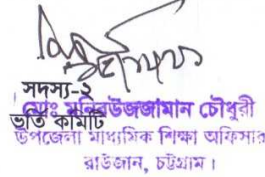 সদস্য-২
মোঃ মনিরউজ্জামান চৌধুরী
ভর্তি কমিটি
উপজেলা মাধ্যমিক শিক্ষা অফিসার
রাউজান, চট্টগ্রাম।